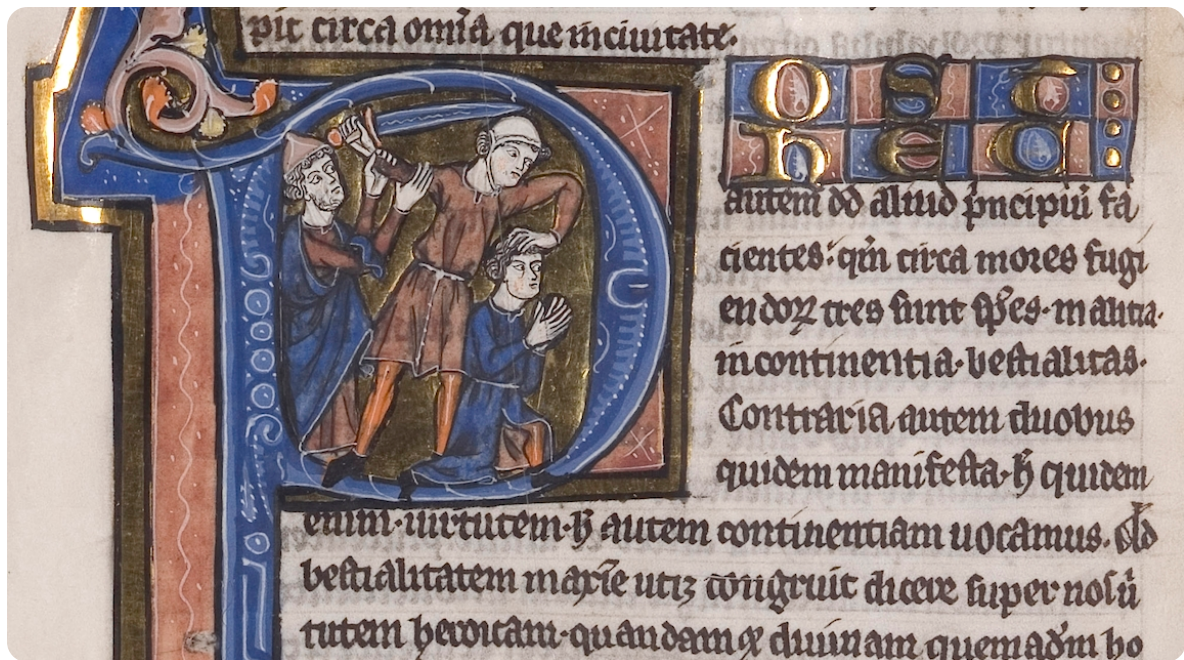 pit circa om̄ia que in ciuitate.
Post
hec
autem dd̄ aliud p̄ncipiū fa
cientes: qm̄ circa mores fugi
endoꝝ tres sunt sp̄es. malitia.
incontinentia. bestialitas.
Contraria autem duobus
quidem manifesta. h̄ quidem
enim. uirtutem. h̄ autem continentiam uocamus. Ad
bestialitatem maxīe utiꝫ congruit dicere super nos ū
tutem heroicam. quandam ⁊ diuinam quemadm̄ ho